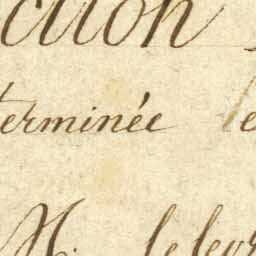 ction
terminée le
M. Lelev